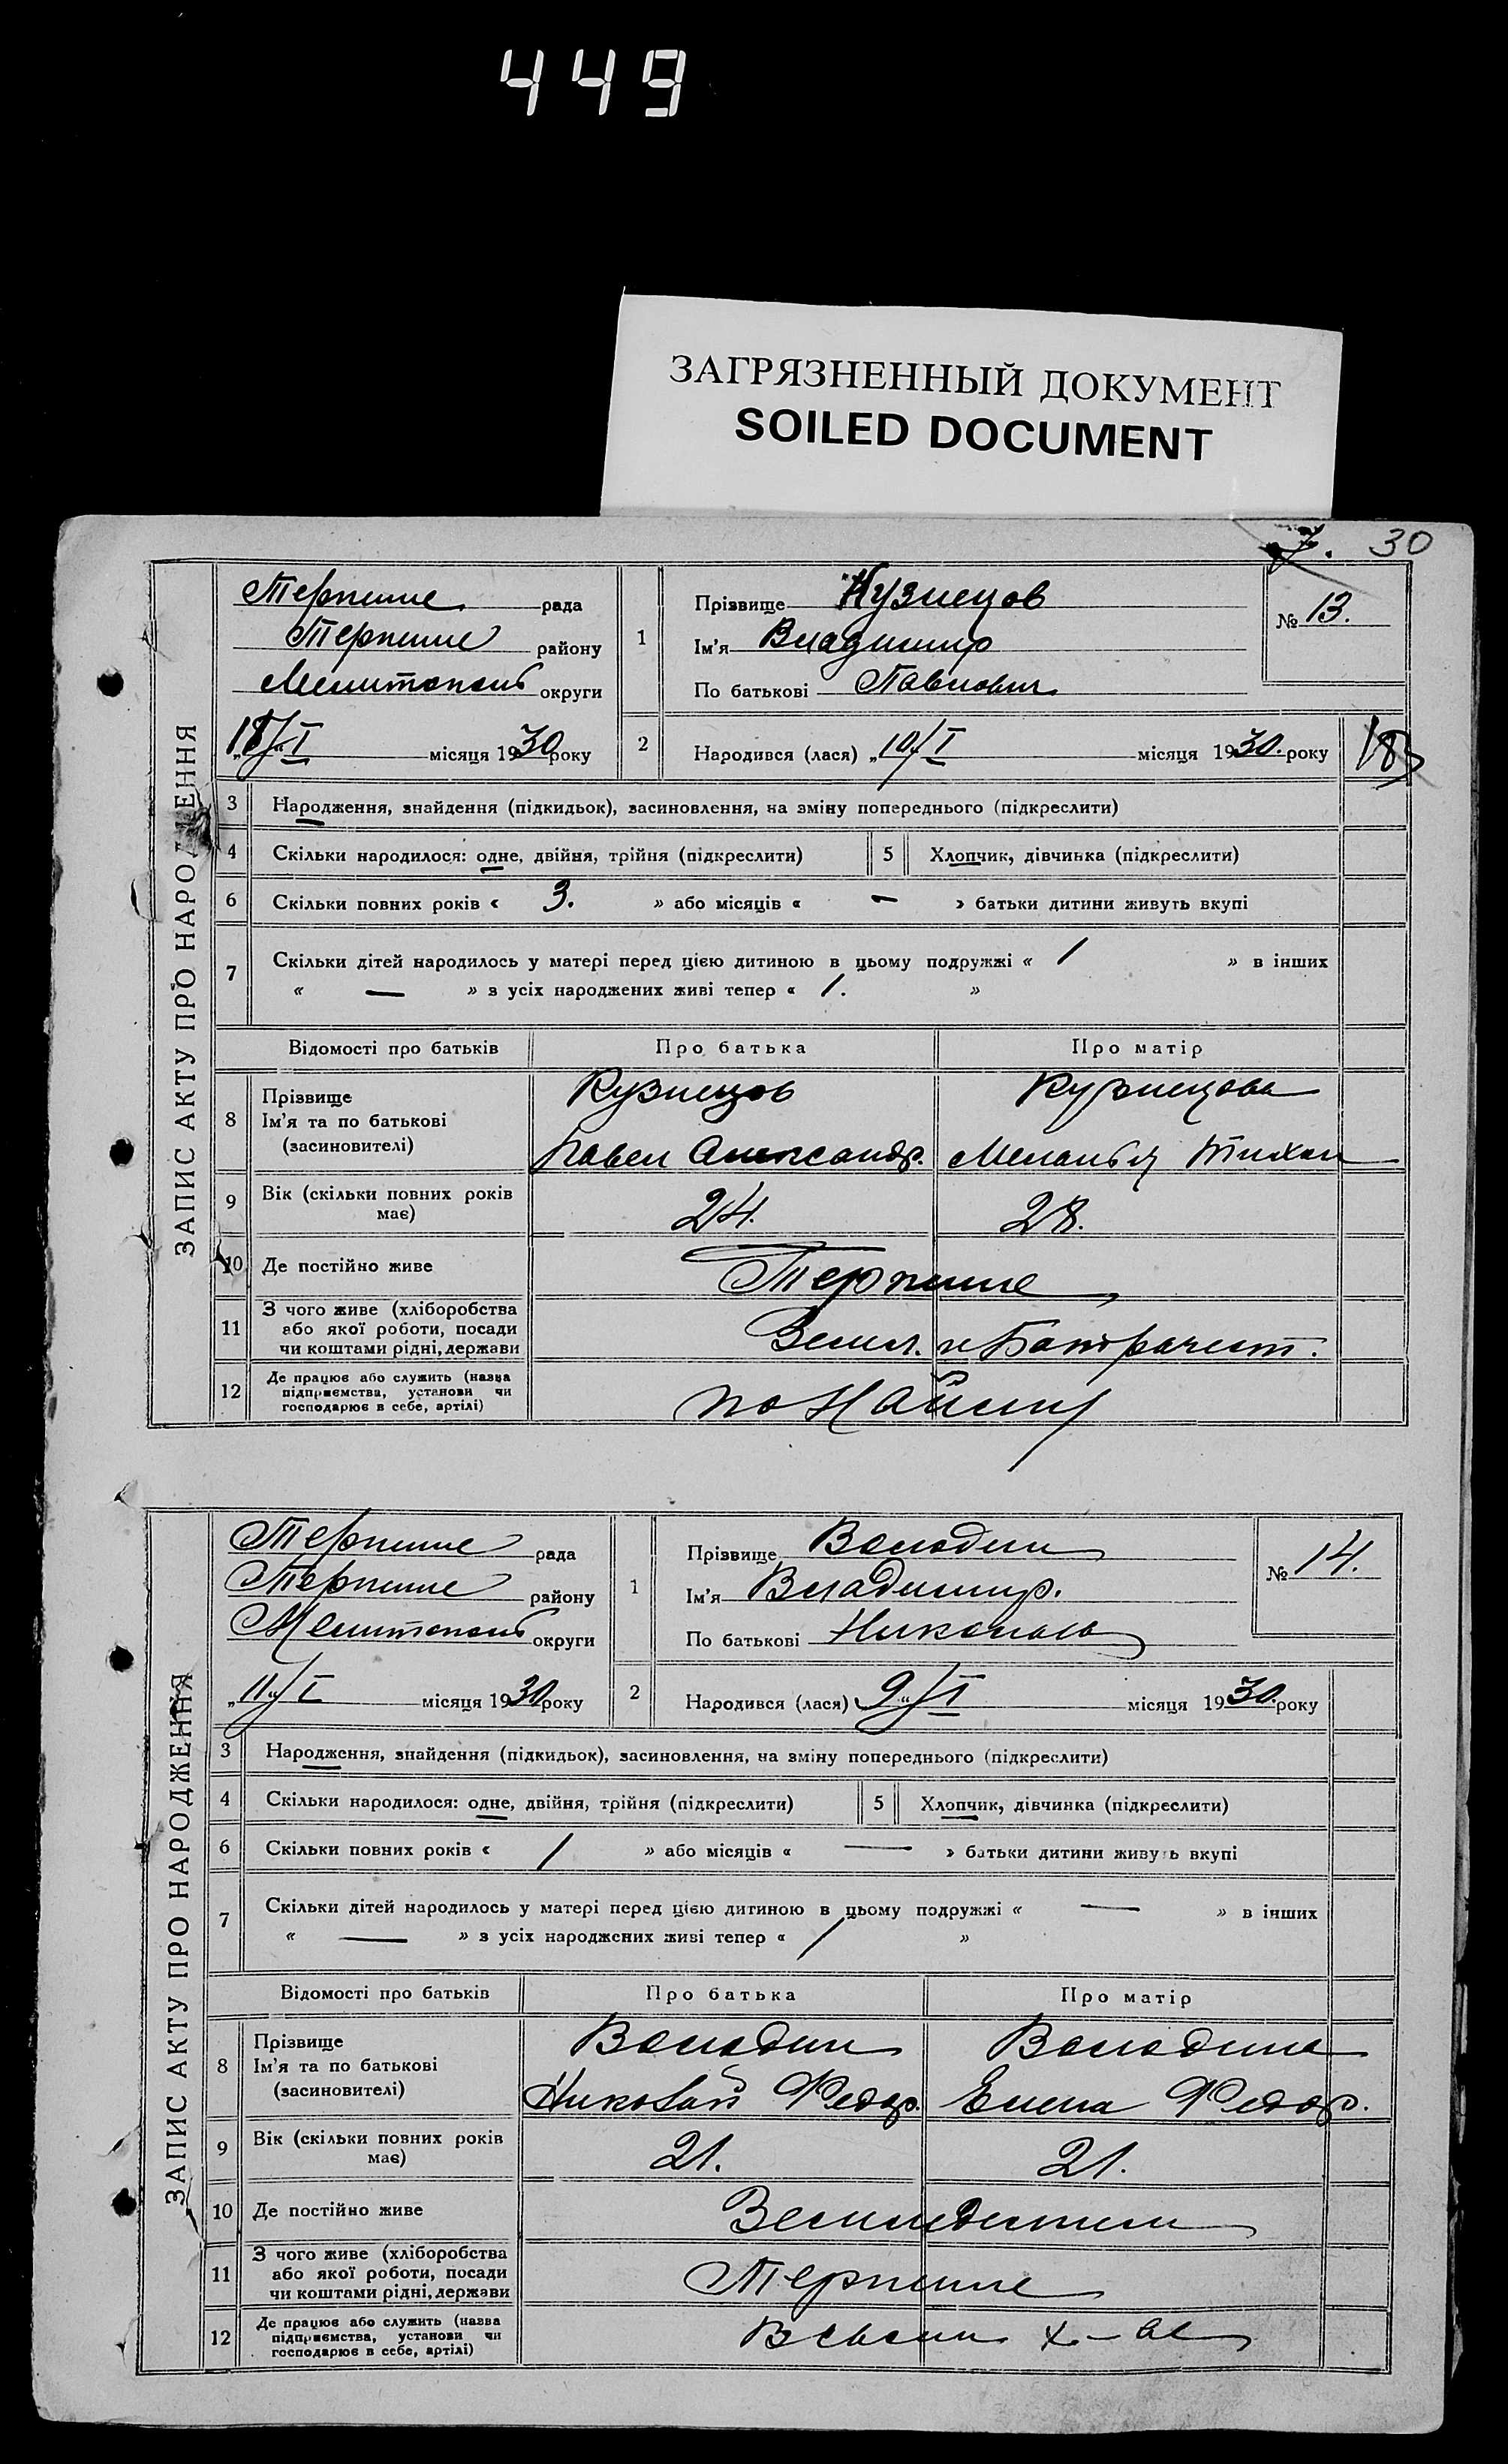 449
ЗАГРЯЗНЕННЫЙ ДОКУМЕНТ
SOILED DOCUMENT
7. 30
ЗАПИС АКТУ ПРО НАРОДЖЕННЯ
Терпение рада
Терпение району
Мелитополь округи
„18/I місяця 1930 року
1
Прізвище Кузнецов
Ім'я Владимир
По батькові Павлович
№ 13.
2 Народився (лася) „10/I місяця 1930. року
183
3 Народження, знайдення (підкидьок), засиновлення, на зміну попереднього (підкреслити)
4 Скільки народилося: одне, двійня, трійня (підкреслити) 5 Хлопчик, дівчинка (підкреслити)
6 Скільки повних років « 3. » або місяців « — » батьки дитини живуть вкупі
7 Скільки дітей народилось у матері перед цією дитиною в цьому подружжі « 1 » в інших
« — » з усіх народжених живі тепер « 1. »
Відомості про батьків Про батька Про матір
8 Прізвище Кузнецов Кузнецова
Ім'я та по батькові
(засиновителі) Павел Александр. Меланья Тихон
9 Вік (скільки повних років
має) 24. 28.
10 Де постійно живе Терпение
11 З чого живе (хліборобства
або якої роботи, посади
чи коштами рідні, держави Земл. и Батрачест.
12 Де працює або служить (назва
підприємства, установи чи
господарює в себе, артілі) по Найму
ЗАПИС АКТУ ПРО НАРОДЖЕННЯ
Терпение рада
Терпение району
Мелитополь округи
„11/I місяця 1930 року
1
Прізвище Володин
Ім'я Владимир.
По батькові Никола
№ 14.
2 Народився (лася) 9„/I місяця 1930. року
3 Народження, знайдення (підкидьок), засиновлення, на зміну попереднього (підкреслити)
4 Скільки народилося: одне, двійня, трійня (підкреслити) 5 Хлопчик, дівчинка (підкреслити)
6 Скільки повних років « 1 » або місяців « — » батьки дитини живуть вкупі
7 Скільки дітей народилось у матері перед цією дитиною в цьому подружжі « — » в інших
« — » з усіх народжених живі тепер « 1 »
Відомості про батьків Про батька Про матір
8 Прізвище Володин Володина
Ім'я та по батькові
(засиновителі) Николай Федор. Елена Федор.
9 Вік (скільки повних років
має) 21. 21.
10 Де постійно живе Земледелием
11 З чого живе (хліборобства
або якої роботи, посади
чи коштами рідні, держави Терпение
12 Де працює або служить (назва
підприємства, установи чи
господарює в себе, артілі) В своим х-ве